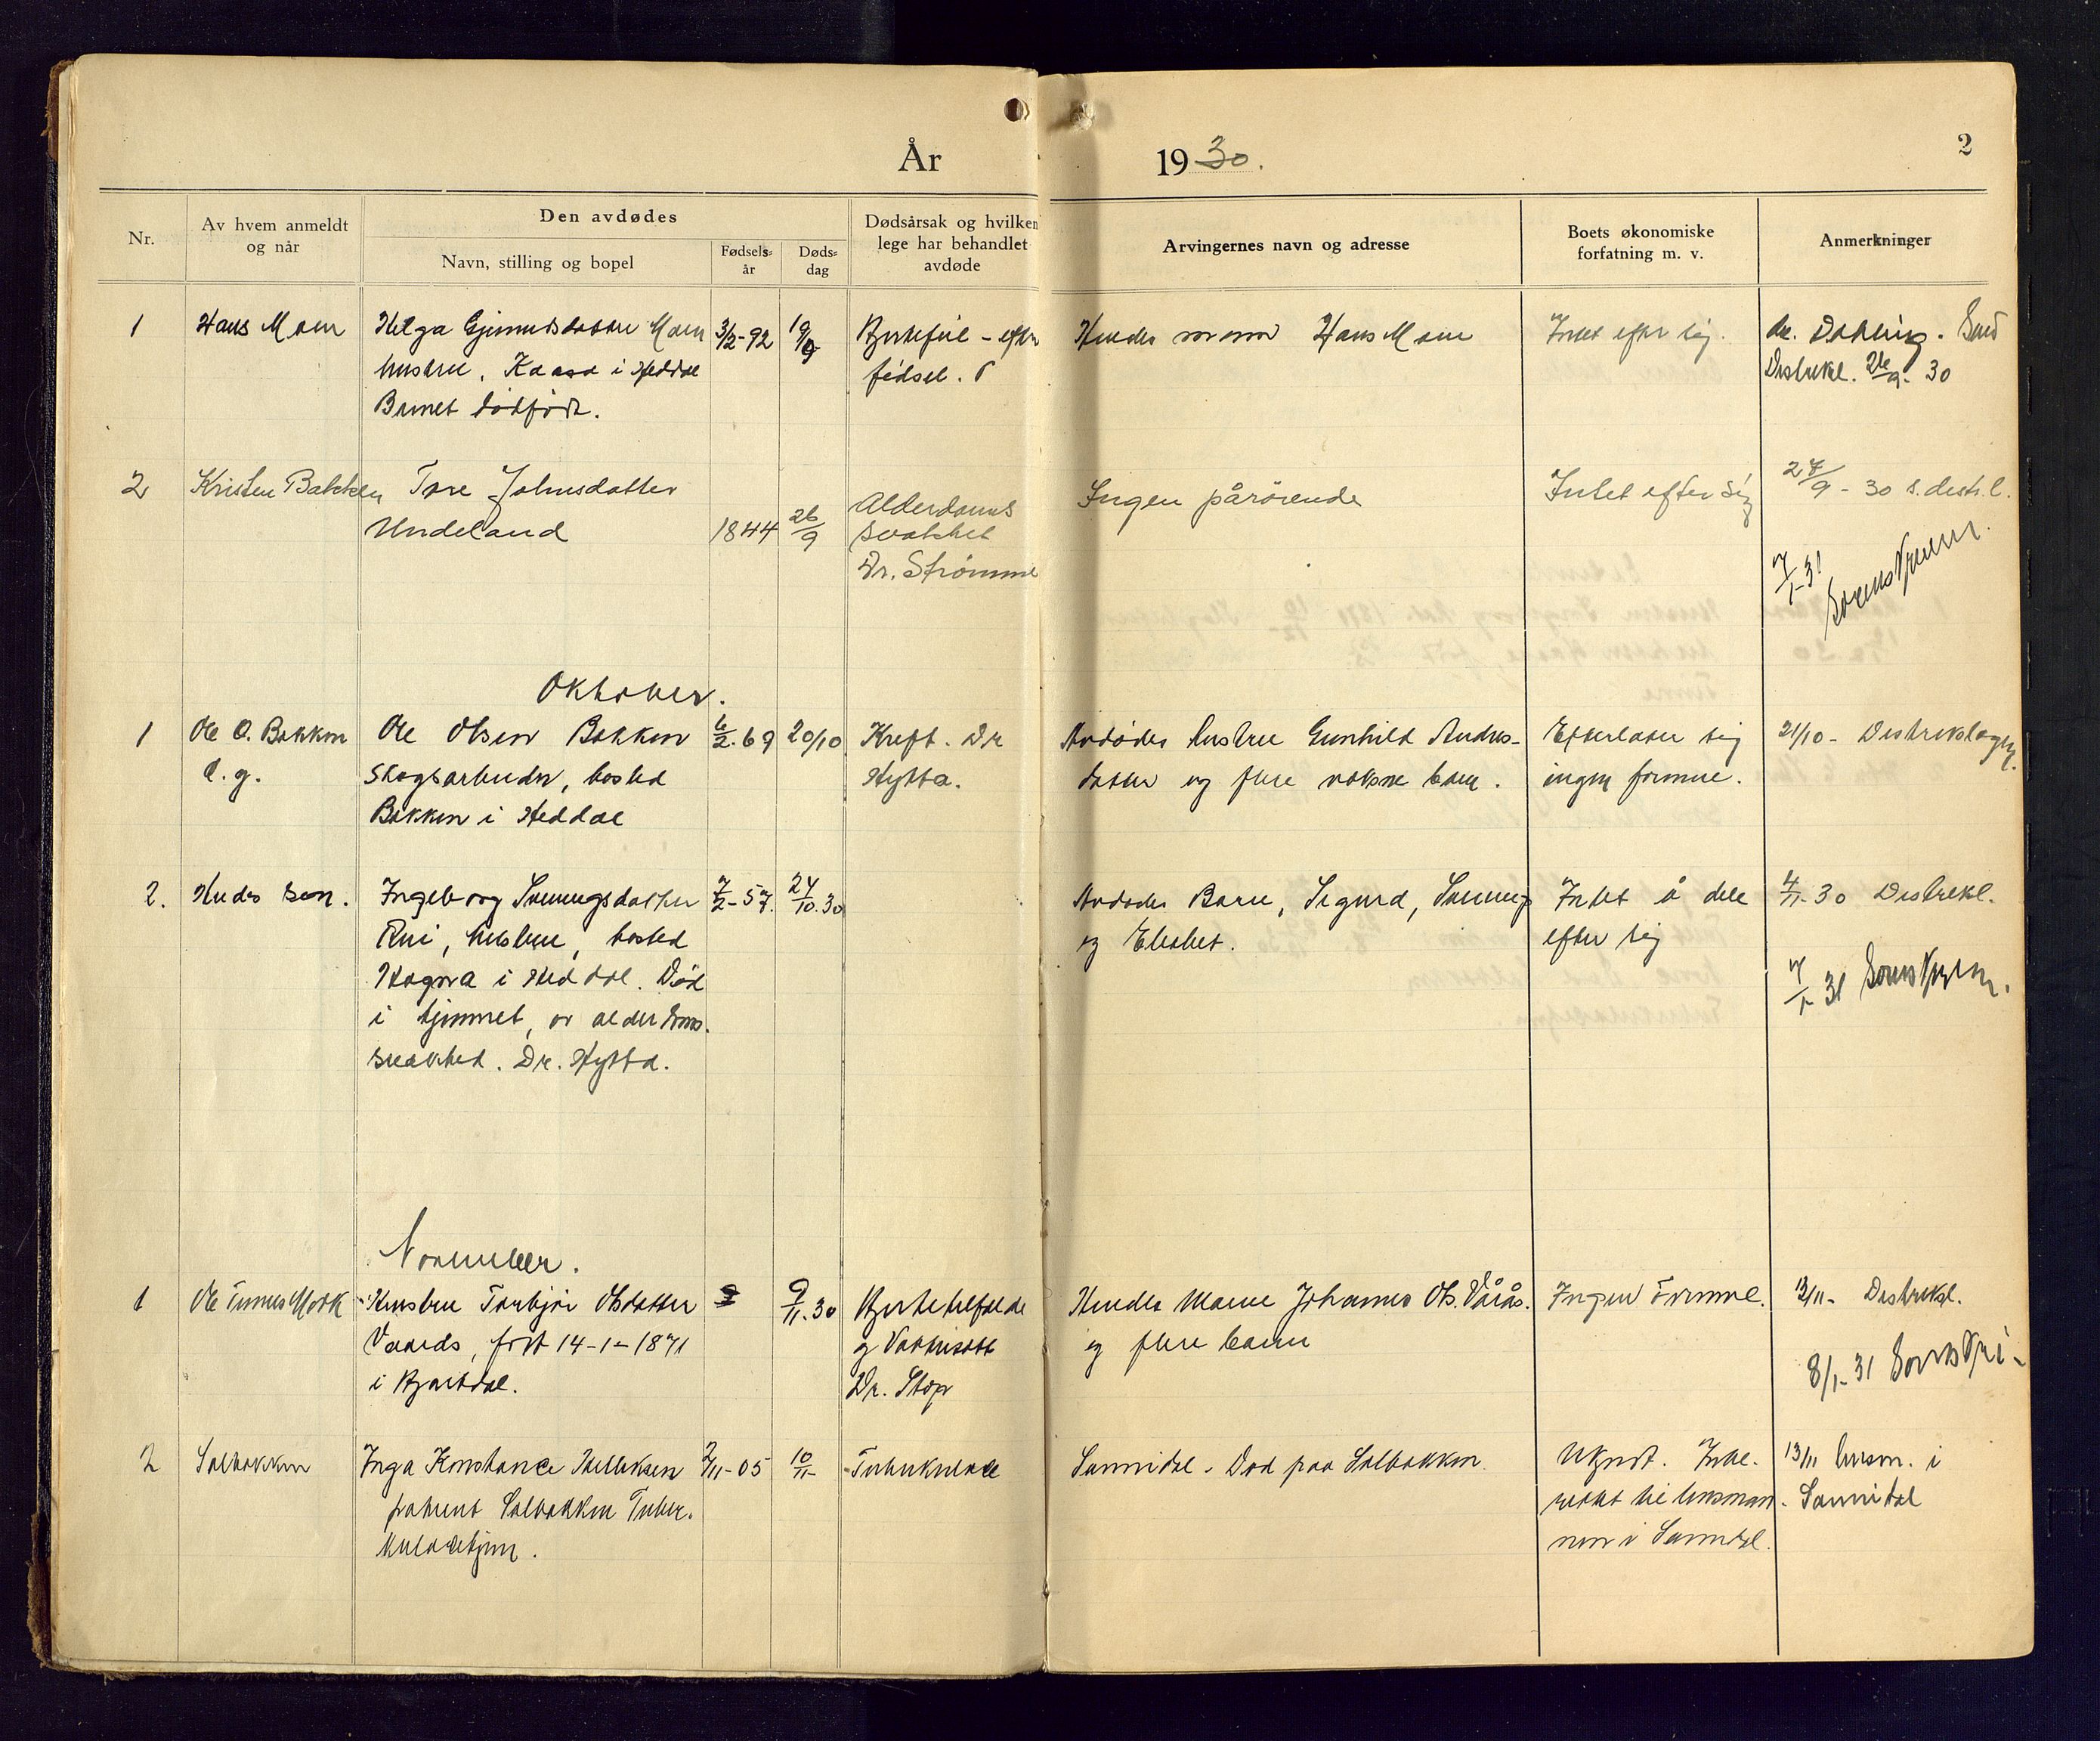 År 1930.
2
Nr.
Av hvem anmeldt
og når
Den avdødes
Navn, stilling og bopel
Fødsels-
år
Døds-
dag
Dødsårsak og hvilken
lege har behandlet
avdøde
Arvingernes navn og adresse
Boets økonomiske
forfatning m. v.
Anmerkninger
1
Hans Moen
Helga Gjermundsdatter Moen
hustru. Kaasa i Heddal
Barnet dødfødt.
3/2-92
19/9
Hjertefeil - efter
fødsel.
Hendes mann Hans Moen
Intet efter sig.
Send
Distriktl. 26/9- 30
2
Kristen Bakken
Tore Johnsdatter
Undeland
1844
26/9
Alderdoms
svakhet
Dr. Strømme
Ingen pårörende
Intet efter sig
27/9 - 30 s. destr.l.
7/1-31
Sorenskriveren.
Oktober.
1
Ole O. Bakken
l. g.
Ole Olsen Bakken
Skogsarbeider, bosted
Bakken i Heddal
6/2-69
20/10
Kreft. Dr
Hytta.
Avdødes hustru Gunhild Andres-
datter og flere voksne barn.
Efterlater sig
ingen formue.
21/10- Distriktslegen.
2.
Hendes sønn.
Ingeborg Sveinungsdatter
Rui, hustru, bosted
Hagna i Heddal. Død
i hjemmet, av alderdoms-
svakhet. Dr. Hytta.
7/2-57.
24/10.30
Avdødes Barn, Sigurd, Sveinung
og Elisabet.
Intet å dele
efter sig
4/11-30 Distriktl.
7/1-31 Sorenskriveren.
November.
1
Ole Tinnes Mork
Hustru Torbjør Olsdatter
Vaaraas, født 14-1-1871
i Hjartdal.
9/11.30
Hjertetilfelde
og Vattersott
Dr. Stop
Hendes Mann Johannes Ols. Vårås.
og flere barn
Ingen Formue.
13/11- Distriktl.
8/1-31 Sorenskri-
2
Solbakken
Inga Konstance Tellefsen
patient Solbakken Tuber-
kulosehjem.
2/11-05
10/11-
Tuberkulose
Sannidal. Død paa Solbakken
Ukjendt. Inbe-
rettet til lensman-
nen i Sannidal.
13/11 lensm. i
Sannidal